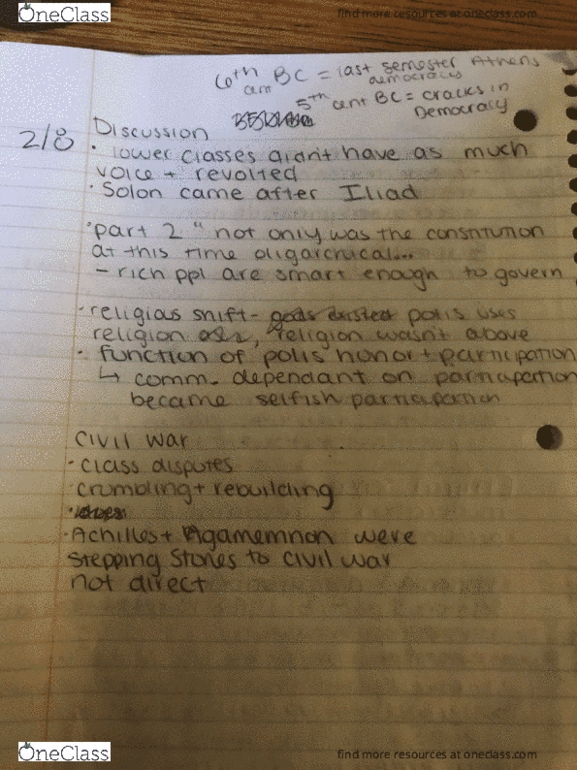 OneClass
find more resources at oneclass.com
6th cent BC = last semester Athens
democracy
5th cent BC = cracks in
Democracy
2/8
Discussion
· lower classes didn't have as much
voice + revolted
· Solon came after Iliad
· part 2 " not only was the constitution
at this time oligarchical...
- rich ppl are smart enough to govern
· religious shift - gods existed polis uses
religion, religion wasn't above
· function of polis honor + participation
↳ comm. dependant on participation
became selfish participation
civil war
· class disputes
· crumbling + rebuilding
· Achilles + Agamemnon were
stepping stones to civil war
not direct
OneClass
find more resources at oneclass.com